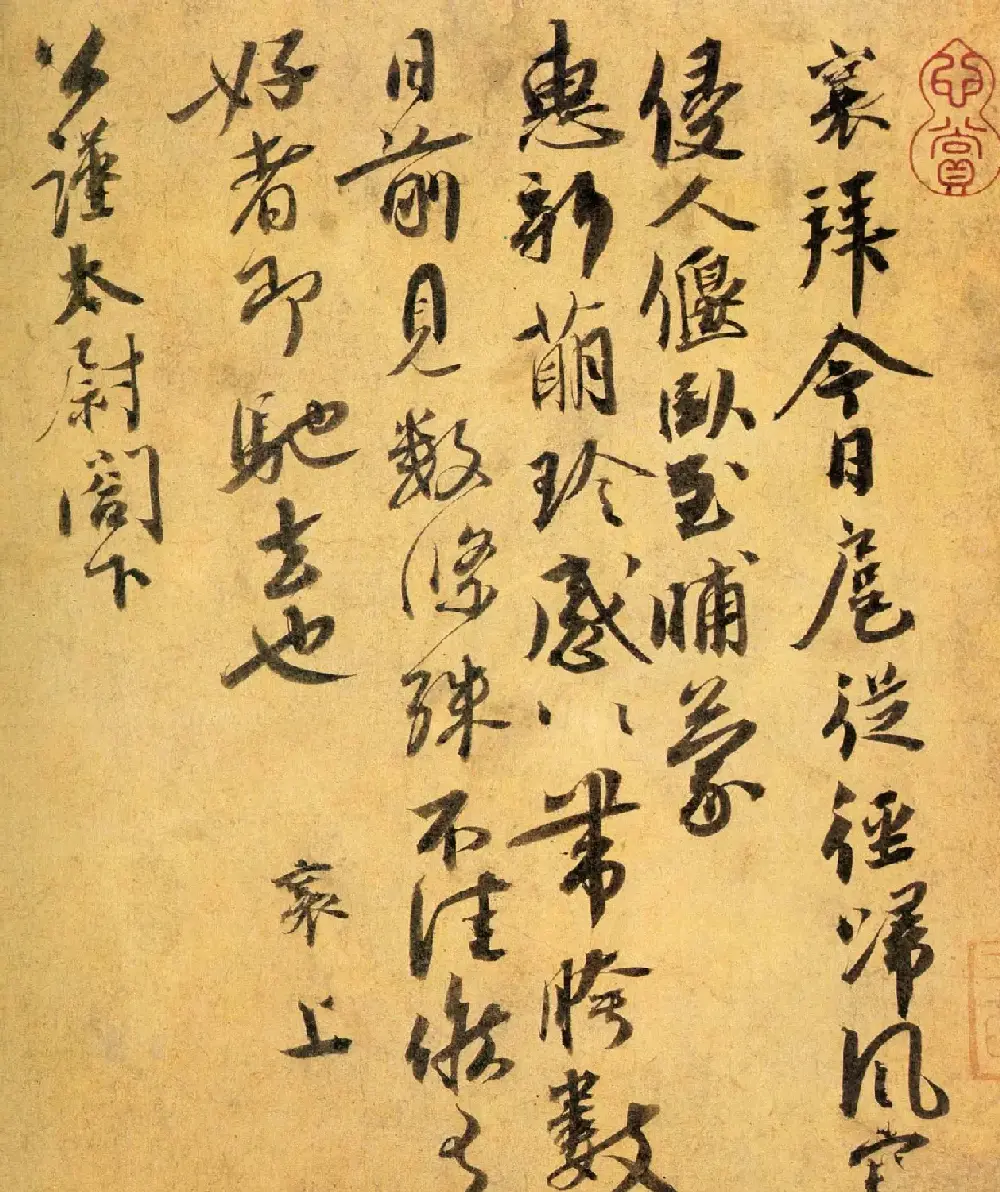 襄拜今日扈從徑歸風寒
侵人偃臥至晡蒙
惠新萌珍感〻帶胯數
日前見数條殊不佳候有
好者即馳去也 襄上
公謹太尉閤下
賞